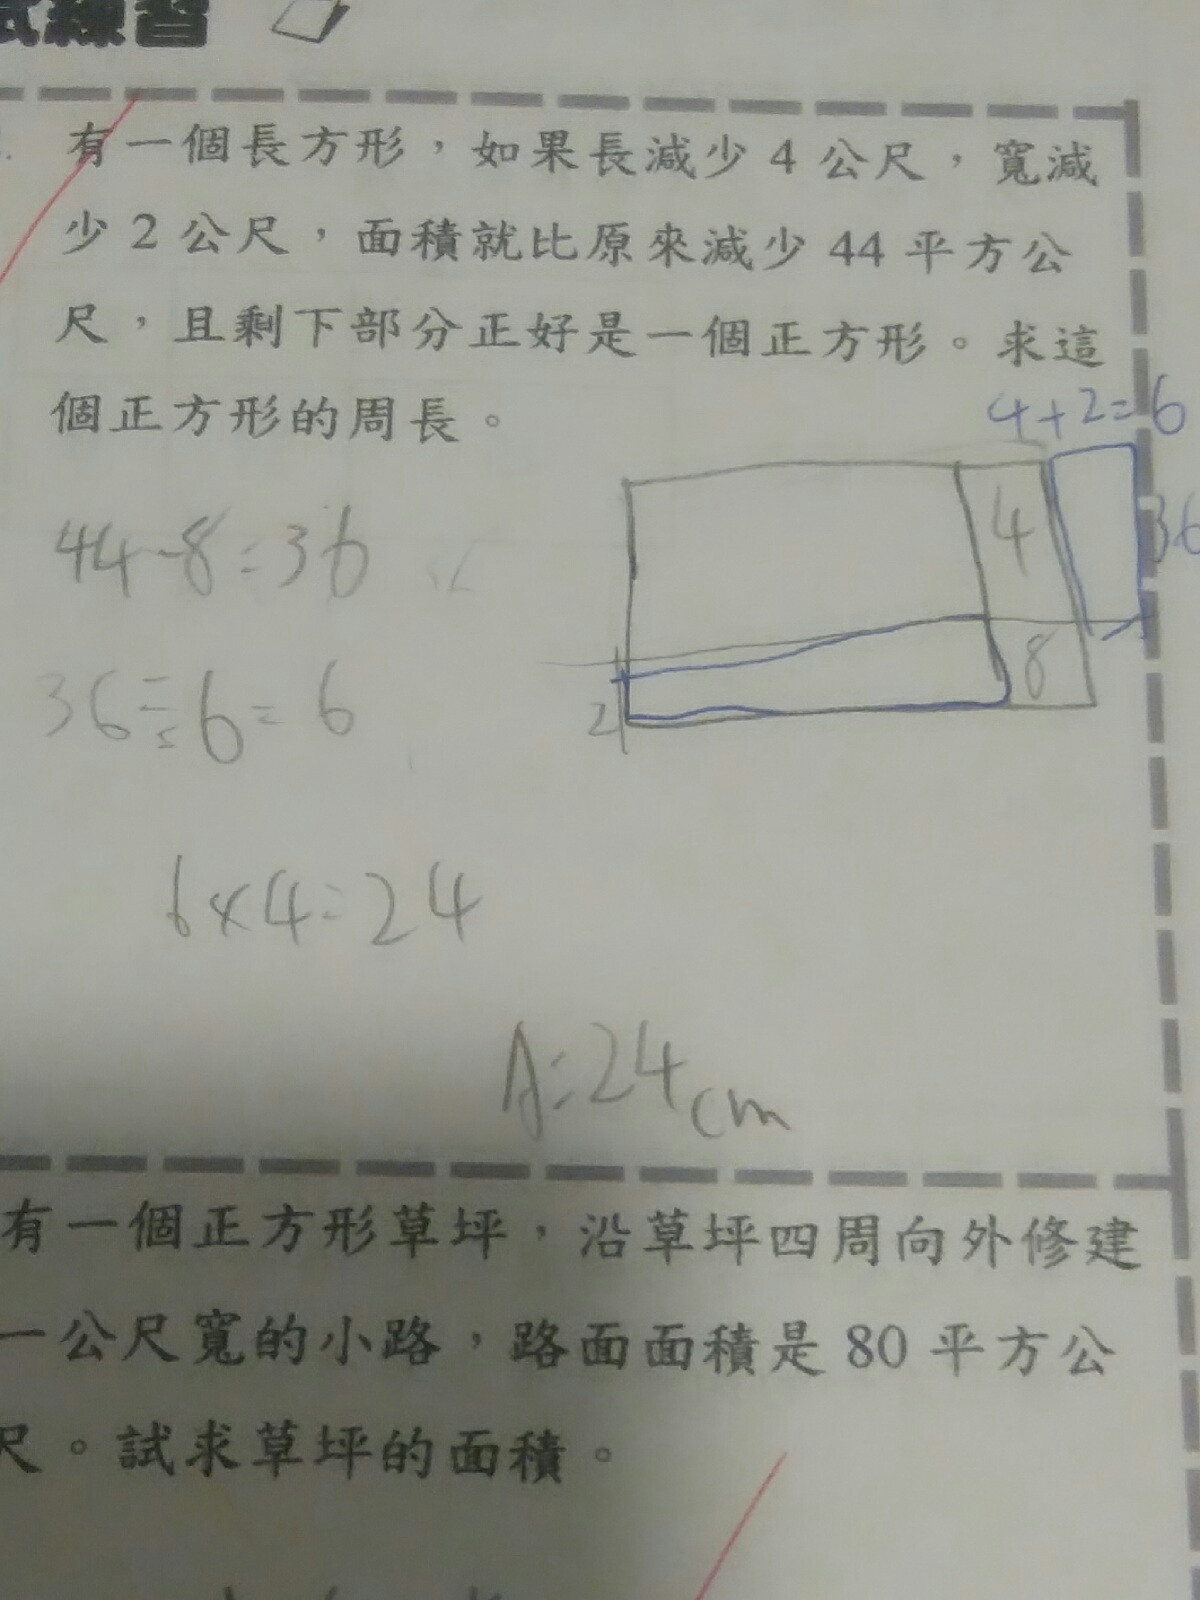 式練習
有一個長方形，如果長減少 4 公尺，寬減
少 2 公尺，面積就比原來減少 44 平方公
尺，且剩下部分正好是一個正方形。求這
個正方形的周長。
4+2=6
44-8=36
4
36
36÷6=6
8
2
6×4=24
A:24cm
有一個正方形草坪，沿草坪四周向外修建
一公尺寬的小路，路面面積是 80 平方公
尺。試求草坪的面積。